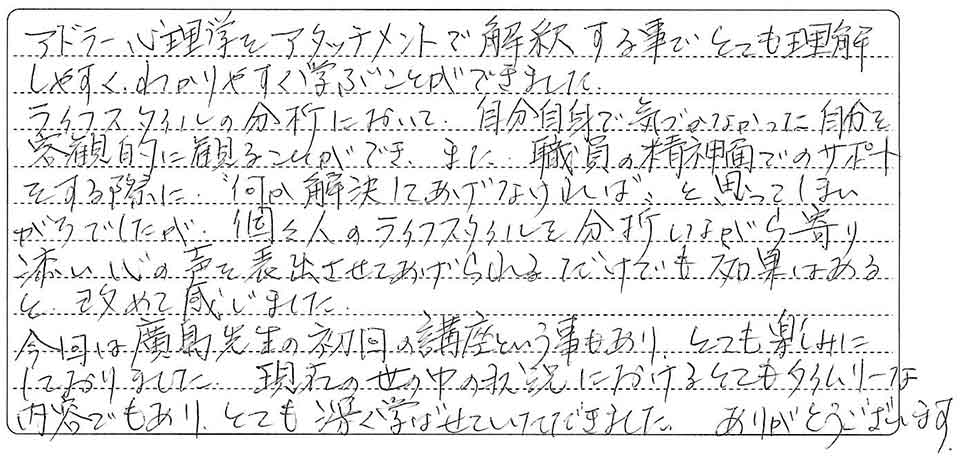 アドラー心理学をアタッチメントで解釈する事でとても理解
しやすく、わかりやすく学ぶことができました。
ライフスタイルの分析において、自分自身で気づかなかった自分を
客観的に観ることができ、また、職員の精神面でのサポート
をする際に、“何か解決してあげなければ〟と思ってしまい
がちでしたが、個々人のライフスタイルを分析しながら寄り
添い心の声を表出させてあげられるだけでも効果はある
と、改めて感じました。
今回は廣島先生の初回の講座という事もあり、とても楽しみに
しておりました。現在の世の中の状況におけるとてもタイムリーな
内容でもあり、とても深く学ばせていただきました。ありがとうございます。